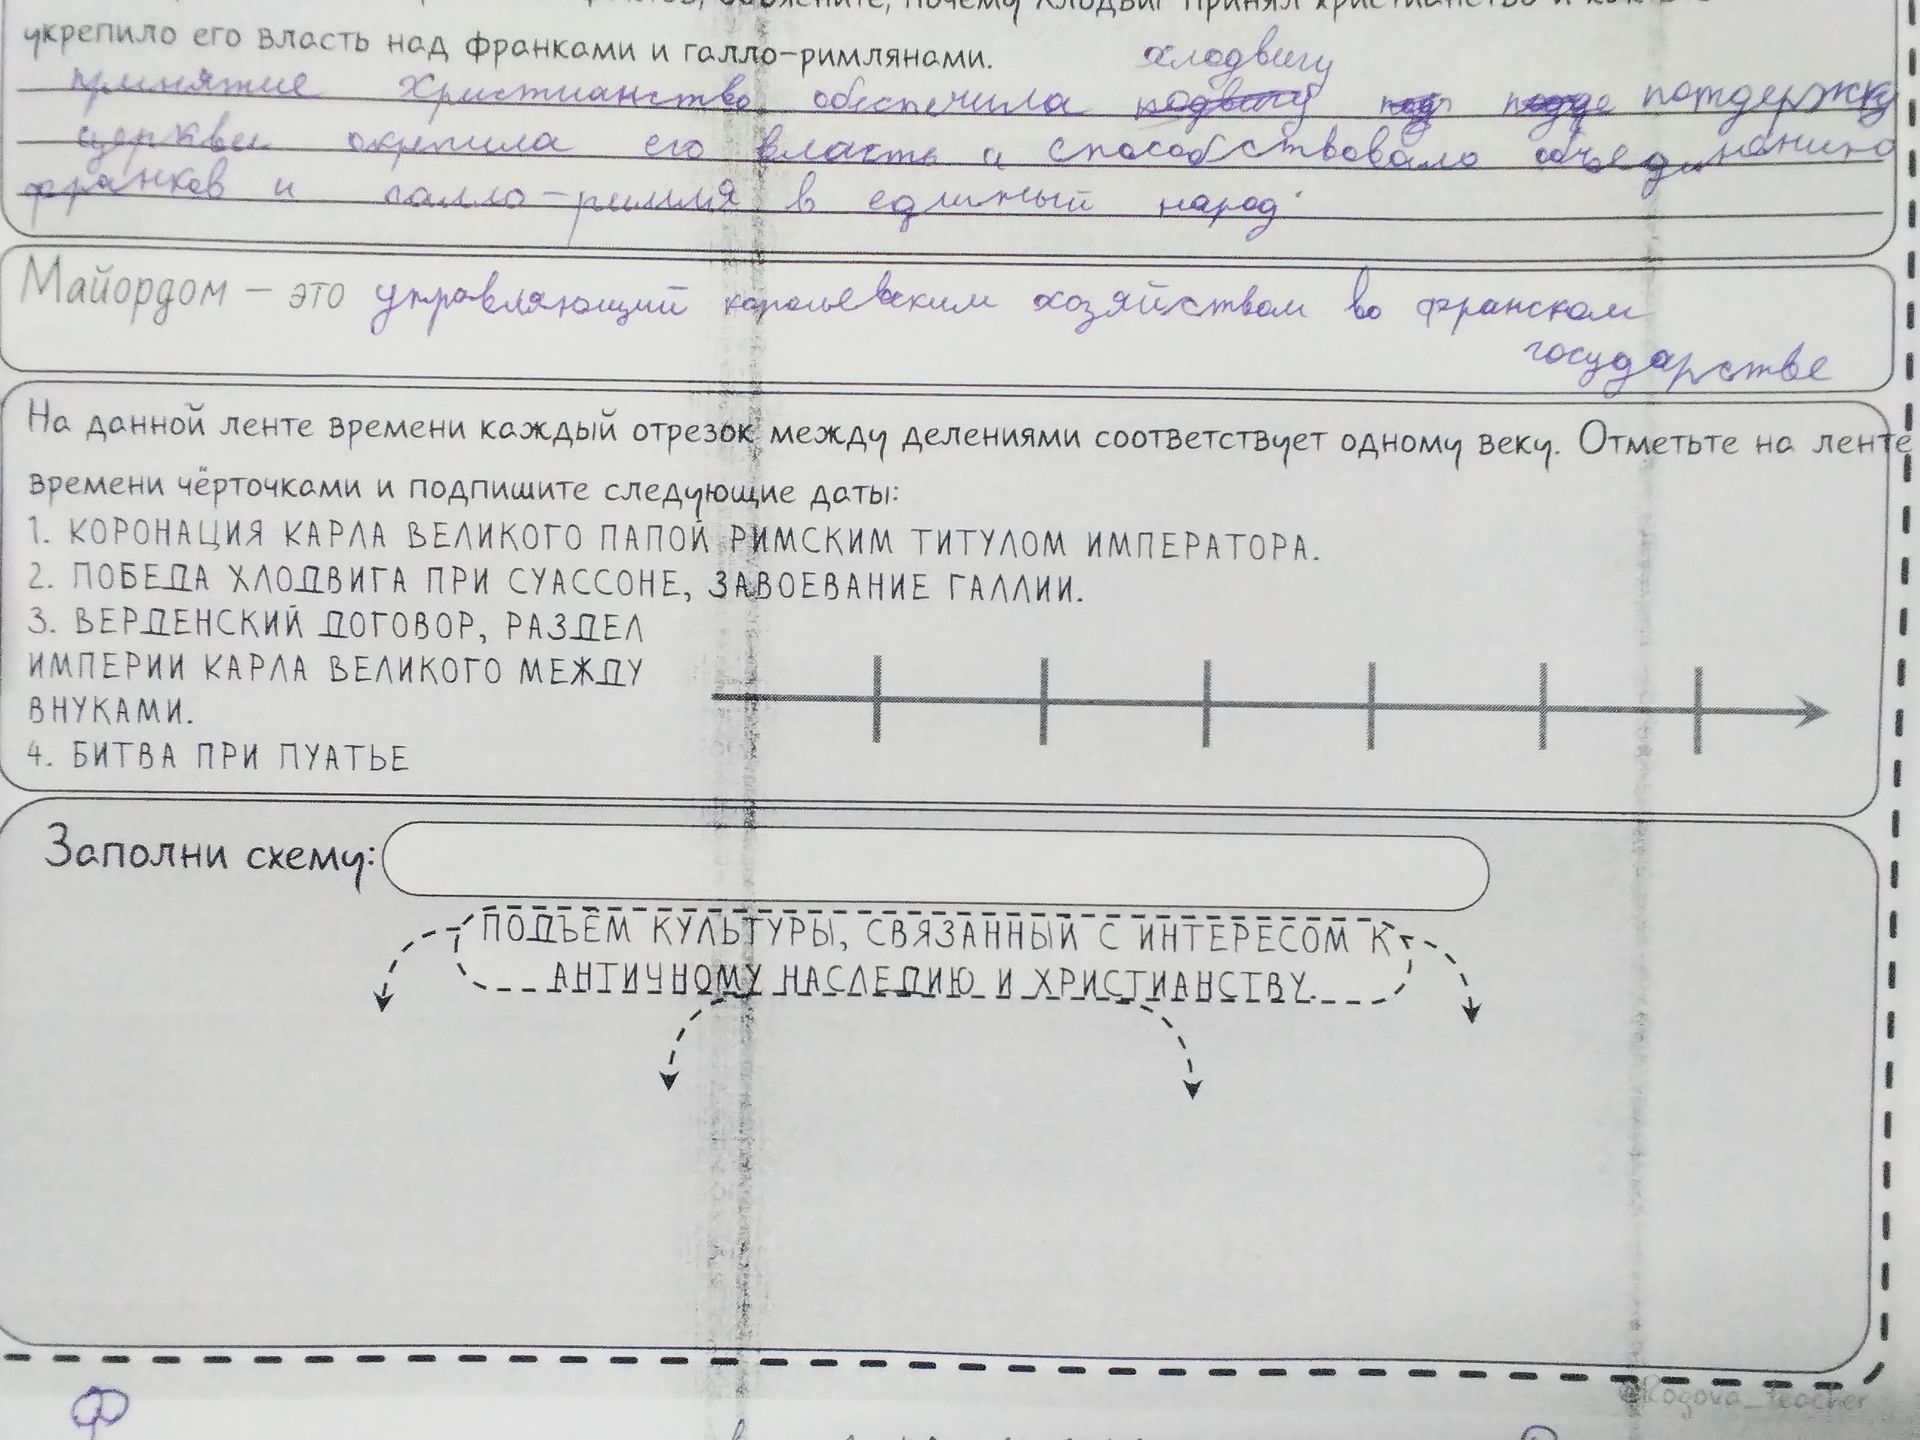 объясните, почему Хлодвиг принял христианство и как это
укрепило его власть над франками и галло-римлянами.
хлодвигу
принятие Христианство обеспечила потдержку
церкви окрепила его власть и способствовало объединению
франков и галло-римля в единый народ.
Майордом – это управляющий королевским хозяйством во франском
государстве
На данной ленте времени каждый отрезок между делениями соответствует одному веку. Отметьте на ленте
времени чёрточками и подпишите следующие даты:
1. КОРОНАЦИЯ КАРЛА ВЕЛИКОГО ПАПОЙ РИМСКИМ ТИТУЛОМ ИМПЕРАТОРА.
2. ПОБЕДА ХЛОДВИГА ПРИ СУАССОНЕ, ЗАВОЕВАНИЕ ГАЛЛИИ.
3. ВЕРДЕНСКИЙ ДОГОВОР, РАЗДЕЛ
ИМПЕРИИ КАРЛА ВЕЛИКОГО МЕЖДУ
ВНУКАМИ.
4. БИТВА ПРИ ПУАТЬЕ
Заполни схему:
ПОДЪЁМ КУЛЬТУРЫ, СВЯЗАННЫЙ С ИНТЕРЕСОМ К
АНТИЧНОМУ НАСЛЕДИЮ И ХРИСТИАНСТВУ.
@Rogova_teacher
Ф